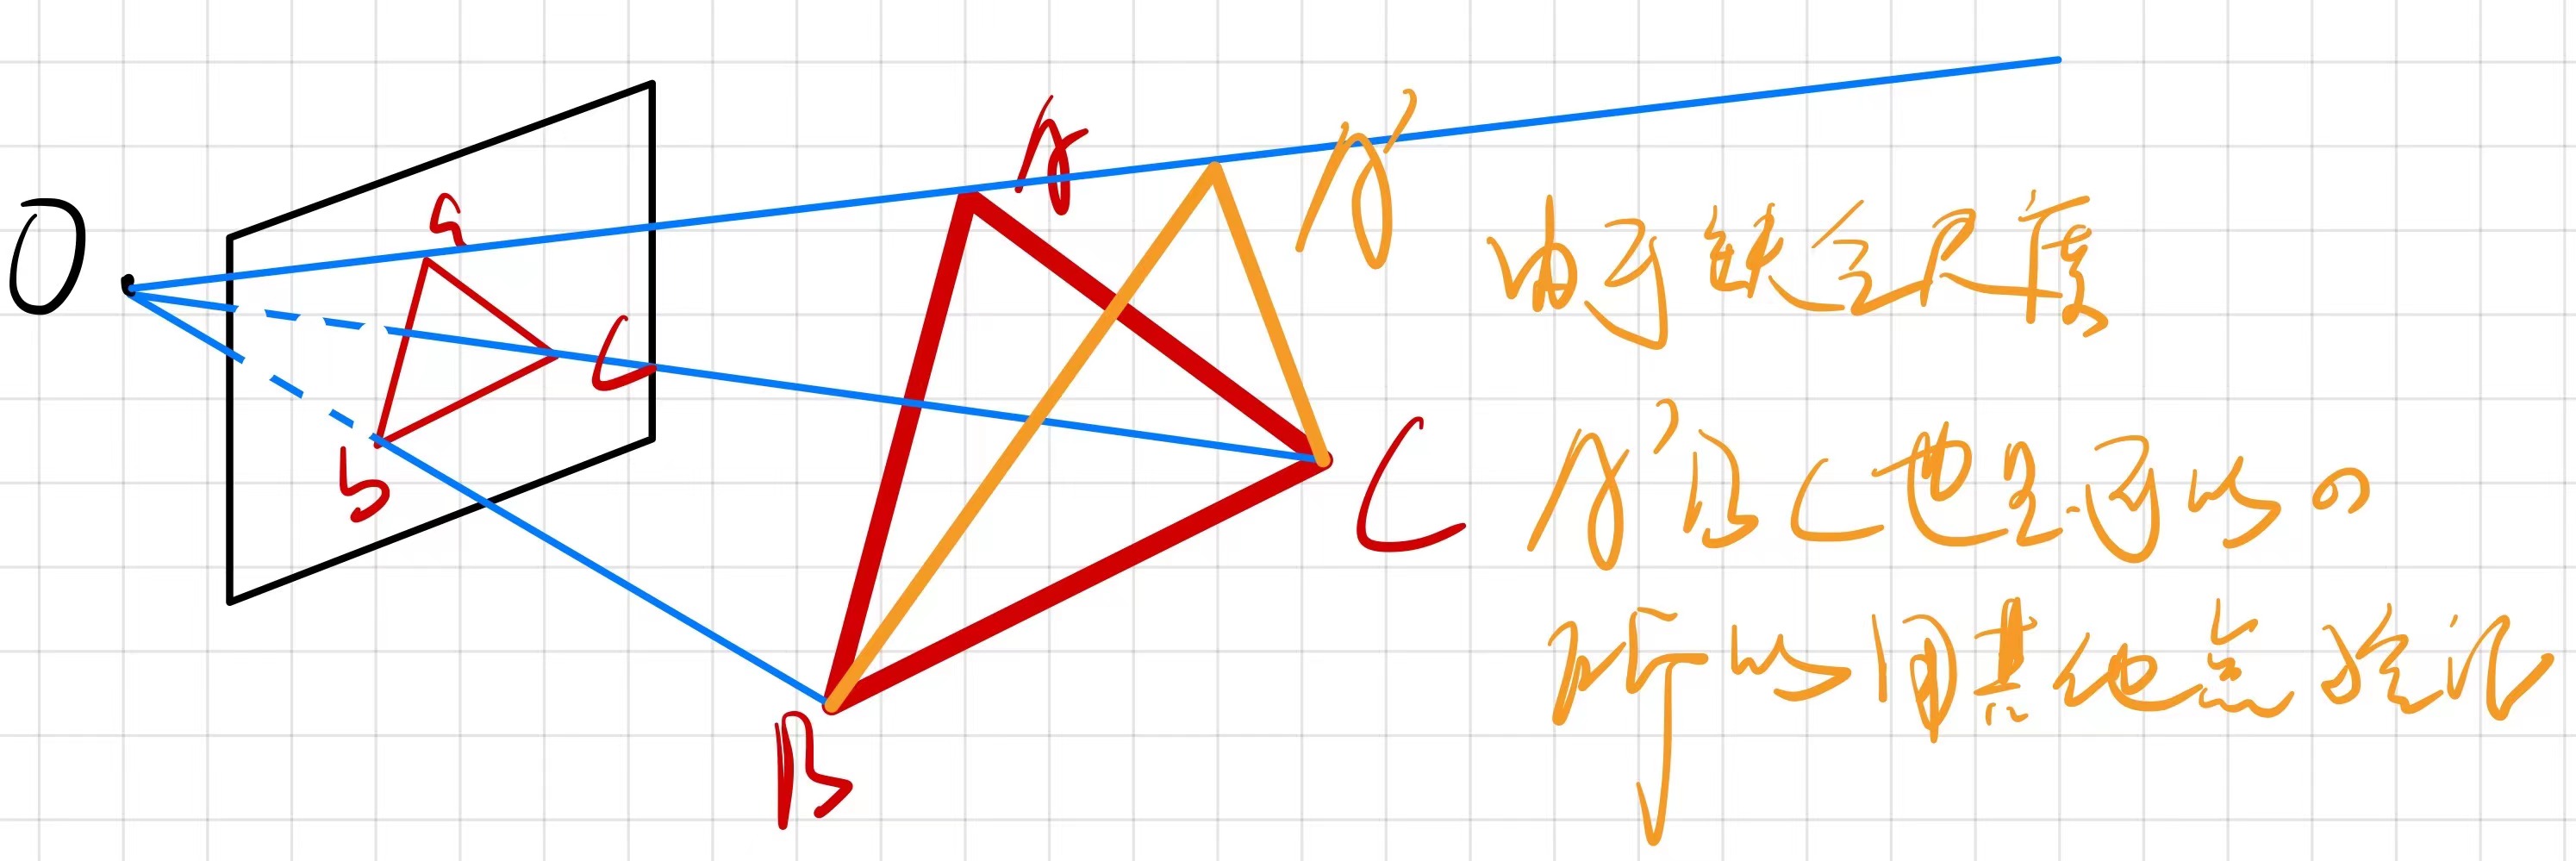 O
a
b
c
A
B
C
A'
由于缺乏尺度
A'BC也是可以的
所以同其他点验证